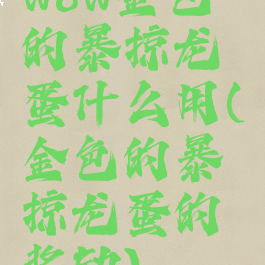 wow金色
的暴掠龙
蛋什么用(
金色的暴
掠龙蛋的
奖励)